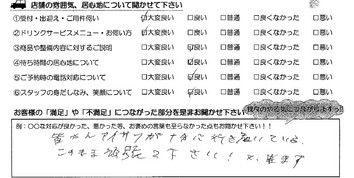 店舗の雰囲気、居心地について聞かせて下さい
①受付・出迎え・ご用件伺い □大変良い □良い □普通 □良くなかった □悪い
②ドリンクサービスメニュー・お伺い方 □大変良い □良い □普通 □良くなかった □悪い
③商品や整備内容に対するご説明 □大変良い □良い □普通 □良くなかった □悪い
④待ち時間の居心地について □大変良い □良い □普通 □良くなかった □悪い
⑤ご予約時の電話対応について □大変良い □良い □普通 □良くなかった □悪い
⑥スタッフの身だしなみ、笑顔について □大変良い □良い □普通 □良くなかった □悪い
我々のやる気につながります!!
お客様の「満足」や「不満足」につながった部分を是非お聞かせ下さい
例：○○な対応が良かった、悪かった等、お褒めの言葉でも叱らなかった点もお聞かせ下さい!!
皆さんアイサツが 行き届いている
このまま頑張って下さい! 又、来ます